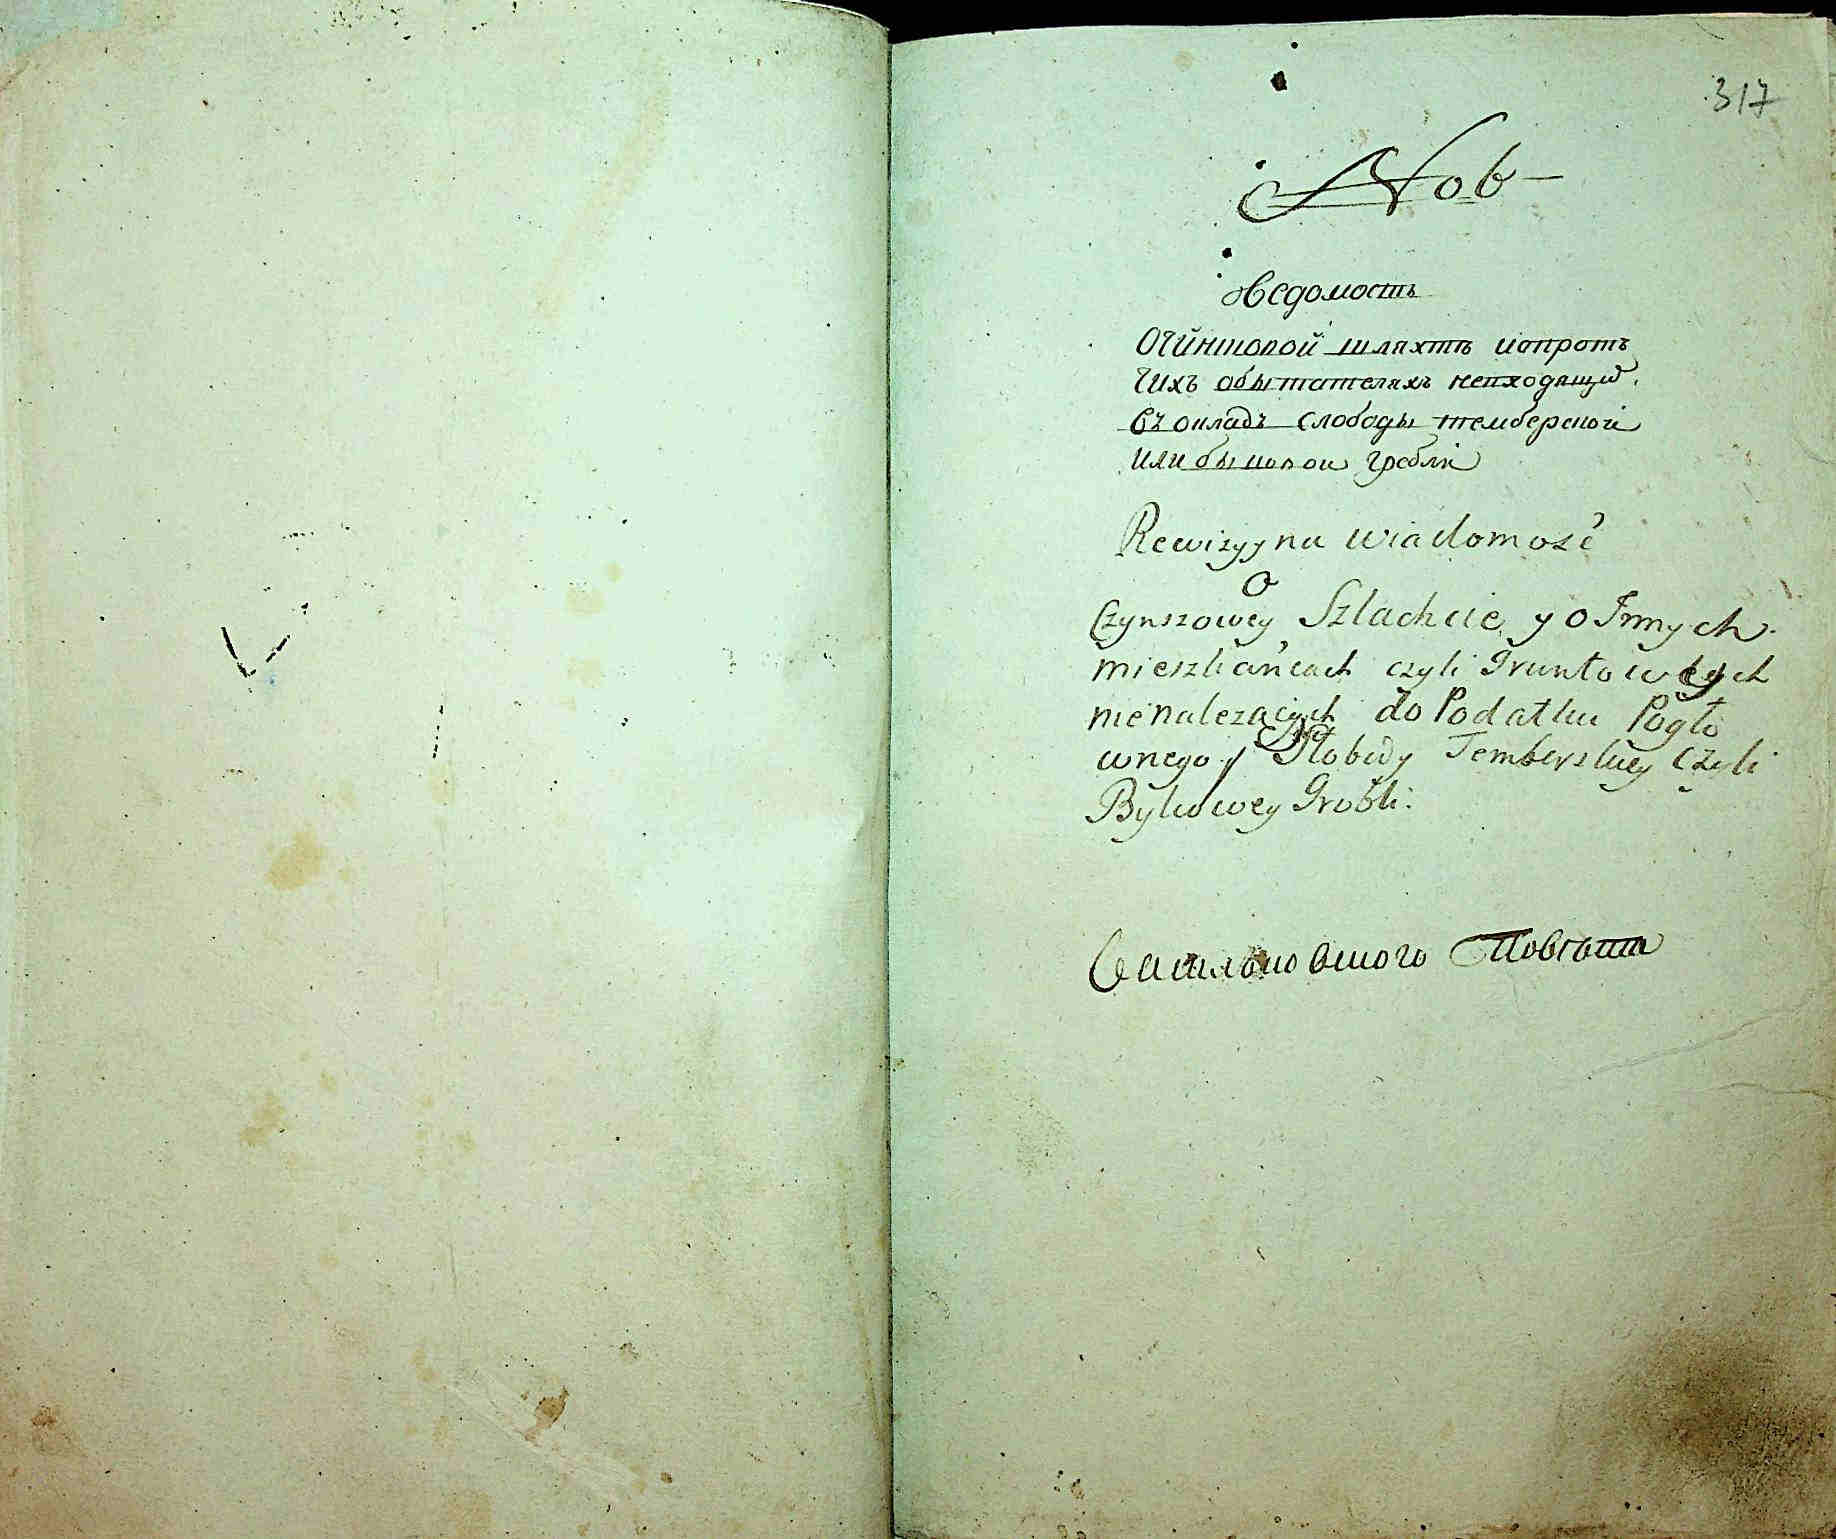 317
Nов
Ведомость
Очиншовой шляхтѣ ископротъ
чихъ обытателяхъ невходящи
въ окладъ слободы темберской
или быковой гребли
Rewizyyna wiadomość
o
Czynszowey Szlachcie y o Innych
mieszkańcach czyli Gruntowych
nienalezących do Podatku Pogło
wnego Słobody Temberskiey czyli
Bykowey Grobli.
Васильковского Повѣта